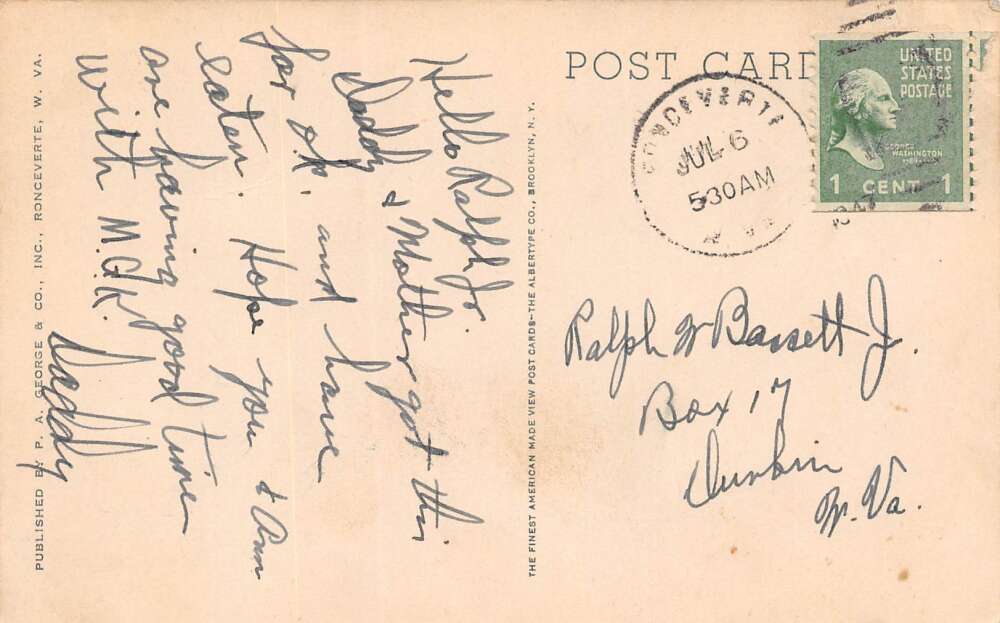 PUBLISHED BY P. A. GEORGE & CO., INC., RONCEVERTE, W. VA.
Hello Ralph Jr.
Daddy & Mother got this
far o.k. and have
eaten. Hope you & Ann
are having good time
with M.G.K.
Daddy
THE FINEST AMERICAN MADE VIEW POST CARDS—THE ALBERTYPE CO., BROOKLYN, N. Y.
POST CARD
RONCEVERTE
JUL 6
530AM
W. VA.
1947
UNITED
STATES
POSTAGE
GEORGE
WASHINGTON
1 CENT 1
Ralph W Bassett Jr.
Box 17
Durbin
W. Va.